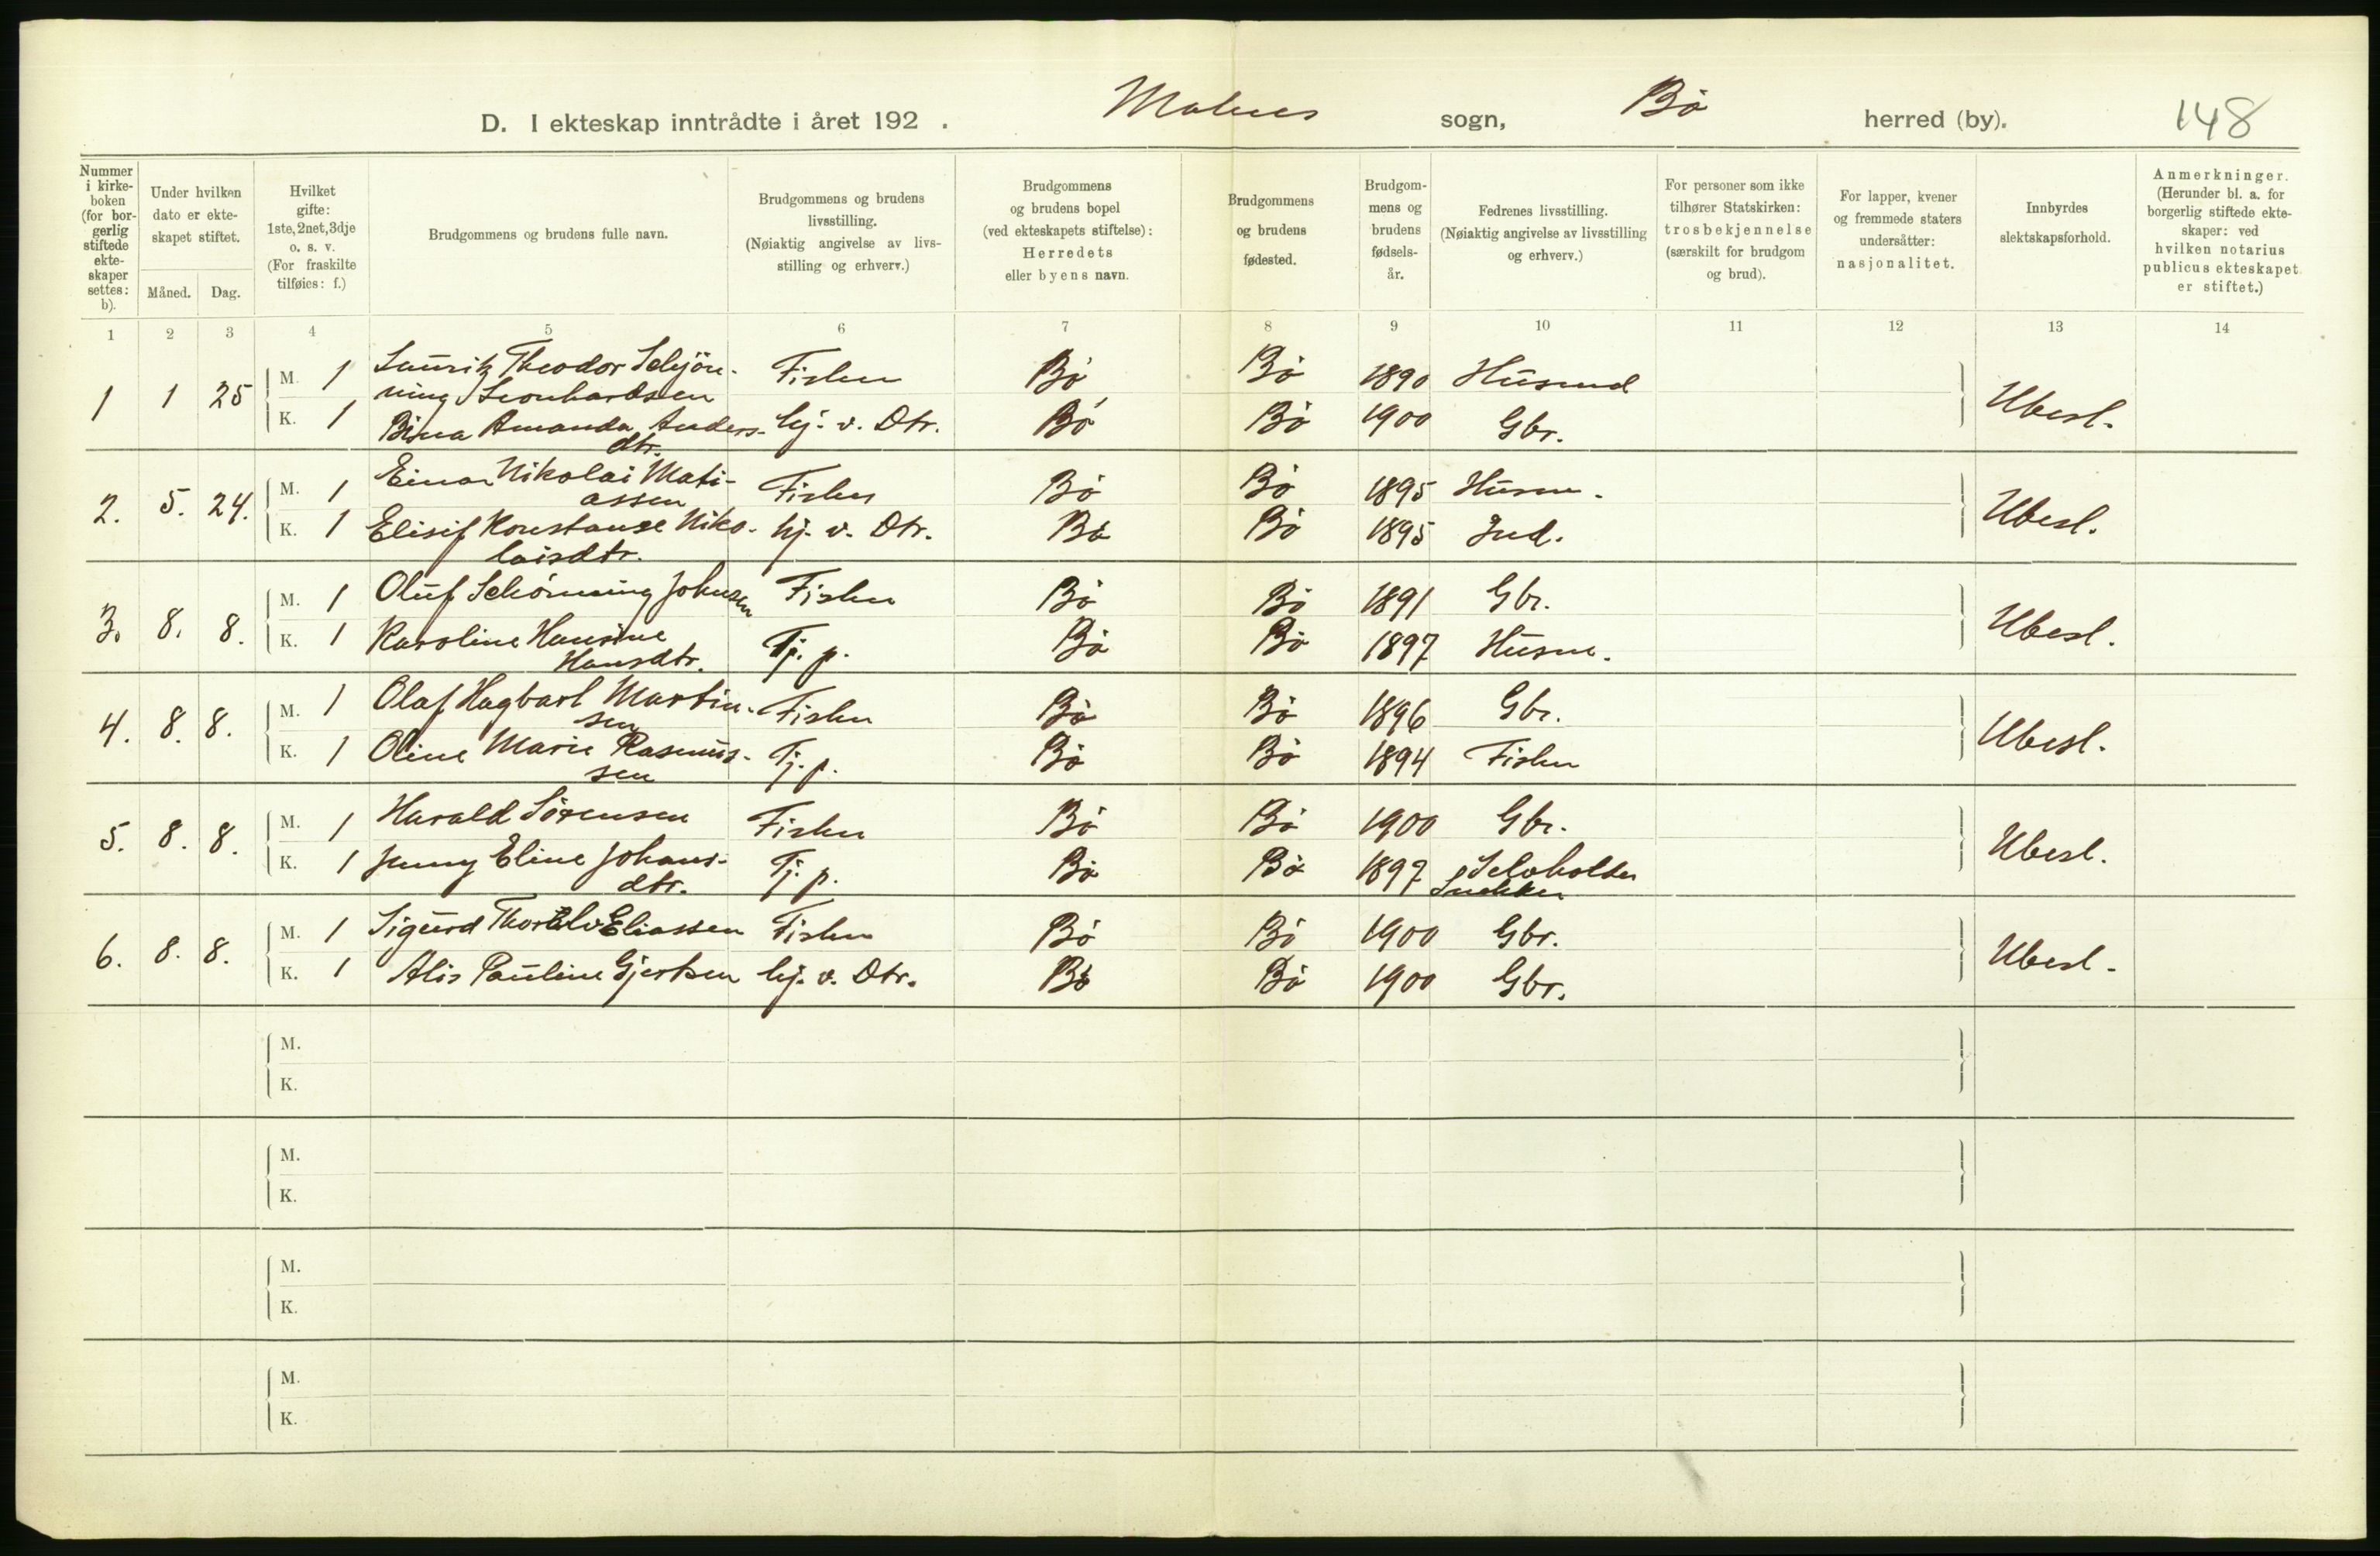 D. I ekteskap inntrådte i året 192 . Malnes sogn, Bø herred (by). 148
Nummer i kirkeboken (for borgerlig stiftede ekteskaper settes: b).
Under hvilken dato er ekteskapet stiftet.
Måned. Dag.
Hvilket gifte: 1ste, 2net, 3dje o. s. v. (For fraskilte tilføies: f.)
Brudgommens og brudens fulle navn.
Brudgommens og brudens livsstilling. (Nøiaktig angivelse av livsstilling og erhverv.)
Brudgommens og brudens bopel (ved ekteskapets stiftelse): Herredets eller byens navn.
Brudgommens og brudens fødested.
Brudgommens og brudens fødselsår.
Fedrenes livsstilling. (Nøiaktig angivelse av livsstilling og erhverv.)
For personer som ikke tilhører Statskirken: trosbekjennelse (særskilt for brudgom og brud).
For lapper, kvener og fremmede staters undersåtter: nasjonalitet.
Innbyrdes slektskapsforhold.
Anmerkninger. (Herunder bl. a. for borgerlig stiftede ekteskaper: ved hvilken notarius publicus ekteskapet er stiftet.)
1 2 3 4 5 6 7 8 9 10 11 12 13 14
1 1 25 M. 1 Lauritz Theodor Schjön-
ning Leonhardsen Fisker Bø Bø 1890 Husmd Ubesl.
K. 1 Bina Amanda Anders-
dtr. hj. v. Dtr. Bø Bø 1900 Gbr.
2. 5. 24. M. 1 Einar Nikolai Mati-
assen Fisker Bø Bø 1895 Husm. Ubesl.
K. 1 Elisif Konstanse Niko-
laisdtr. hj. v. Dtr. Bø Bø 1895 Ind.
3. 8. 8. M. 1 Oluf Schönning Johnsen Fisker Bø Bø 1891 Gbr. Ubesl.
K. 1 Karoline Hansine
Hansdtr. Tj. p. Bø Bø 1897 Husm.
4. 8. 8. M. 1 Olaf Hagbart Martin-
sen Fisker Bø Bø 1896 Gbr. Ubesl.
K. 1 Oline Marie Rasmus-
sen Tj. p. Bø Bø 1894 Fisker
5. 8. 8. M. 1 Harald Sörensen Fisker Bø Bø 1900 Gbr. Ubesl.
K. 1 Jenny Eline Johans-
dtr. Tj. p. Bø Bø 1897 Selvholden
Snekker
6. 8. 8. M. 1 Sigurd Eliassen Fisker Bø Bø 1900 Gbr. Ubesl.
K. 1 Alis Pauline Gjertsen hj. v. Dtr. Bø Bø 1900 Gbr.
M.
K.
M.
K.
M.
K.
M.
K.